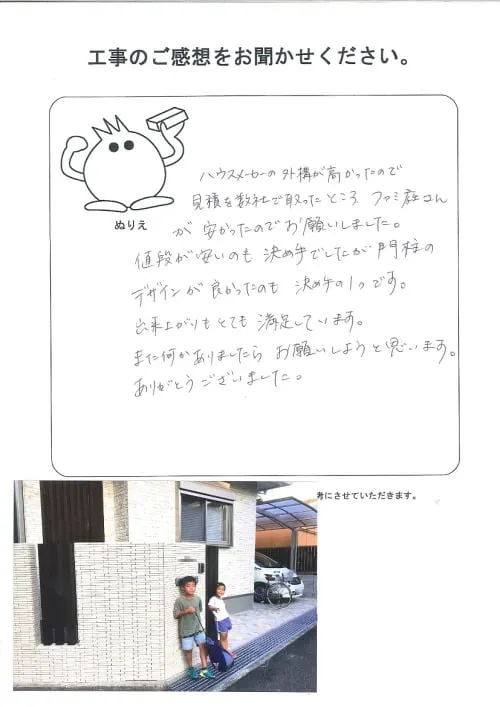 工事のご感想をお聞かせください。
ぬりえ
ハウスメーカーの外構が高かったので
見積を数社で取ったところ ファミ庭さん
が安かったのでお願いしました。
値段が安いのも決め手でしたが門柱の
デザインが良かったのも決め手の1つです。
出来上がりもとても満足しています。
また何かありましたらお願いしようと思います。
ありがとうございました。
考にさせていただきます。